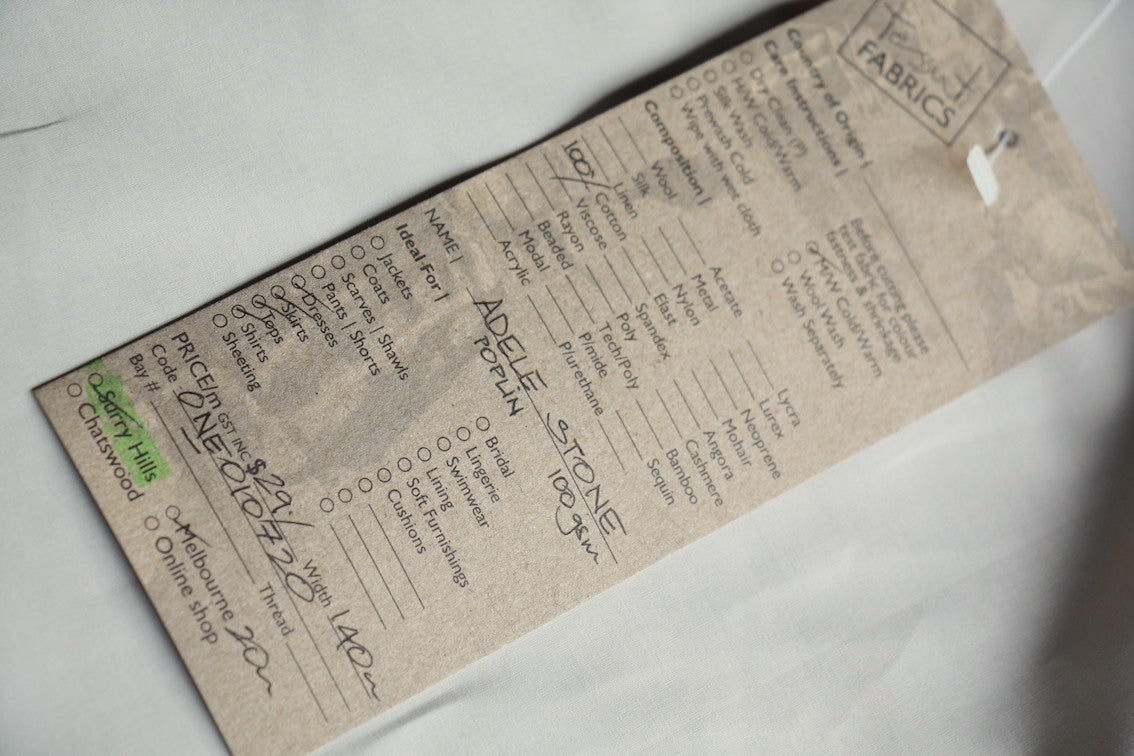 Tessuti
FABRICS
Country of Origin |
Care Instructions |
Dry Clean (P)
H/W Cold/Warm
Silk Wash
Prewash Cold
Wipe with wet cloth
Before cutting please
test fabric for colour
fastness & shrinkage
M/W Cold/Warm
Wool Wash
Wash Separately
Composition |
Wool
Silk
Linen
100% Cotton
Viscose
Rayon
Beaded
Modal
Acrylic
Acetate
Metal
Nylon
Elast
Spandex
Poly
Tech/Poly
P/mide
P/urethane
Lycra
Lurex
Neoprene
Mohair
Angora
Cashmere
Bamboo
Sequin
NAME | ADELE STONE
POPLIN 100gsm
Ideal For |
Jackets
Coats
Scarves | Shawls
Pants | Shorts
Dresses
Skirts
Tops
Shirts
Sheeting
Bridal
Lingerie
Swimwear
Lining
Soft Furnishings
Cushions
PRICE/m GST INC $29/ Width 140
Code ONE010720
Bay # Thread
Surry Hills
Chatswood
Melbourne
Online shop